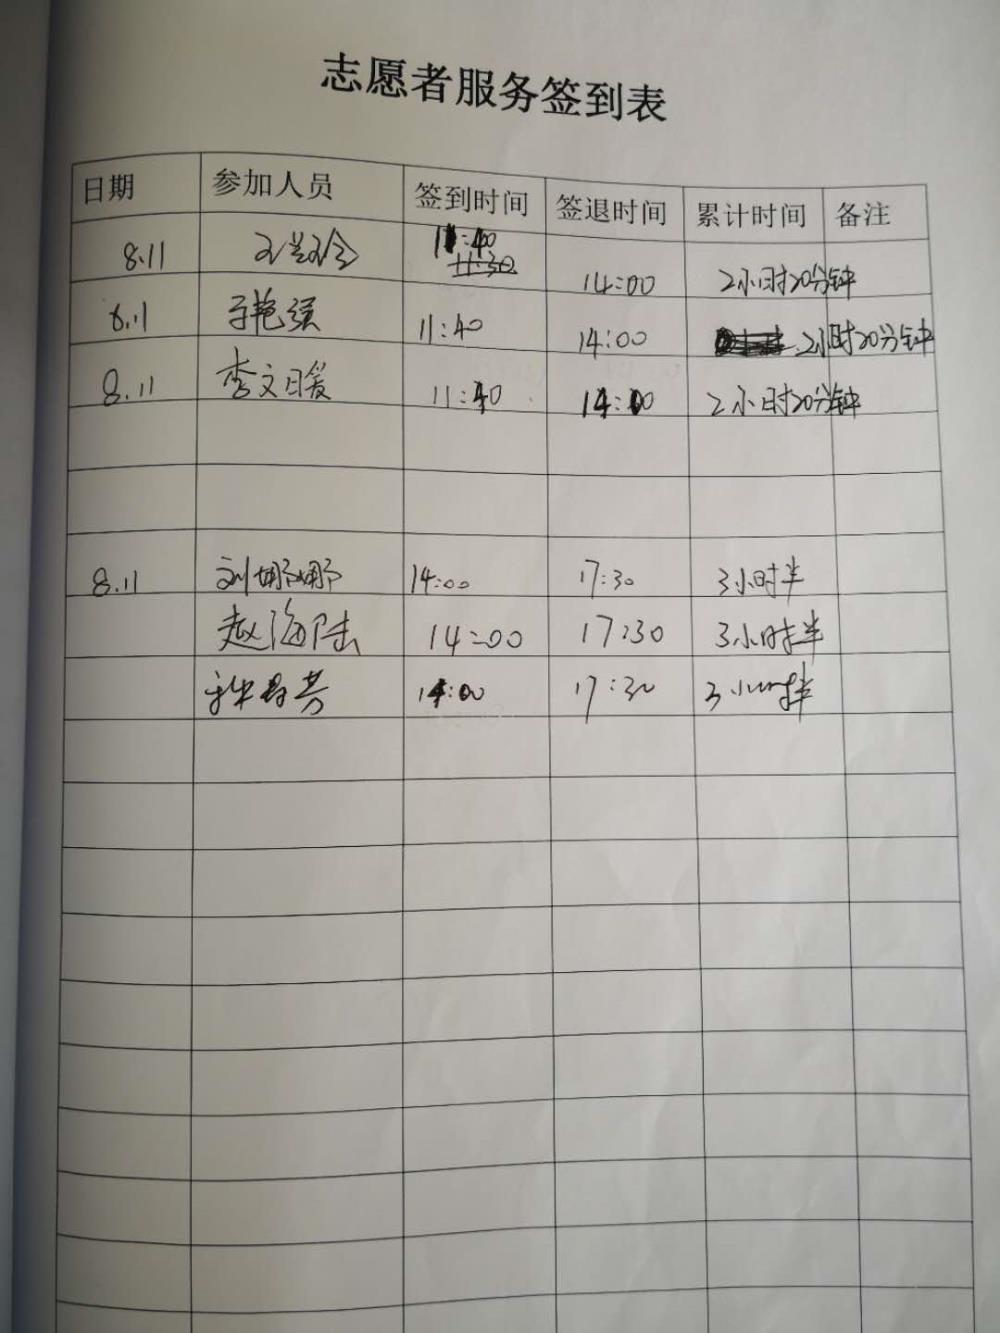 志愿者服务签到表
日期 参加人员 签到时间 签退时间 累计时间 备注
8.11 11:40 11:30 14:00 2小时20分钟
8.11 于艳强 11:40 14:00 2小时20分钟
8.11 李文媛 11:40 14:00 2小时20分钟
8.11 刘娜娜 14:00 17:30 3小时半
赵海陆 14:00 17:30 3小时半
14:00 17:30 3小时半